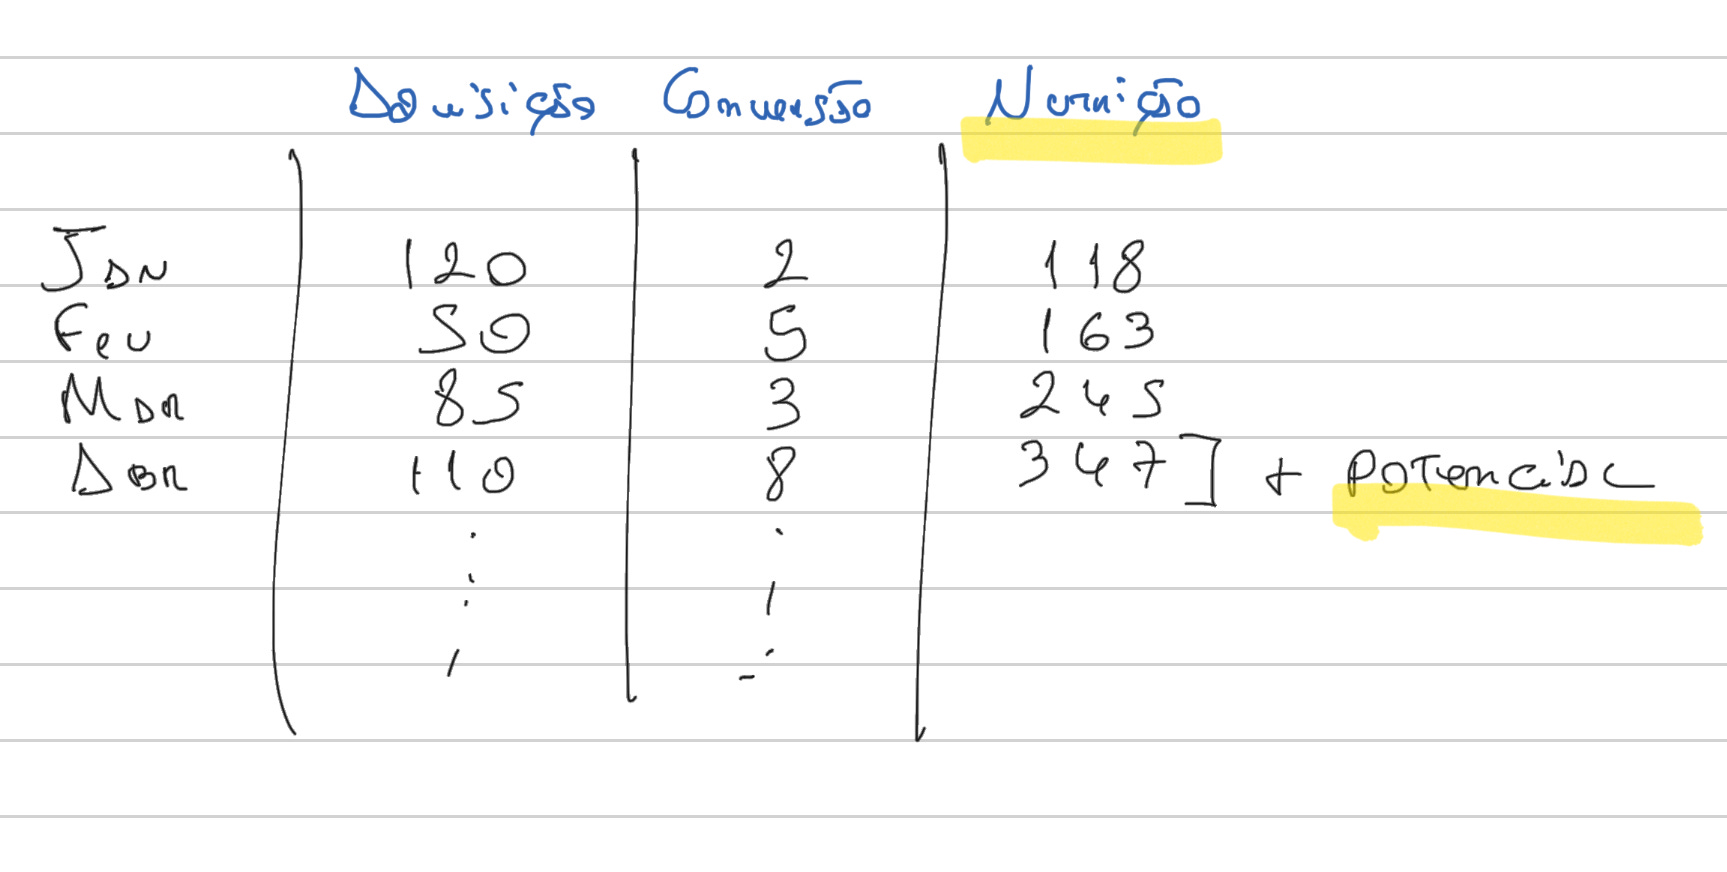 Aquisição Conversão Nurnição
Jan 120 2 118
Fev 50 5 163
Mar 85 3 245
Abr 110 8 347] + Potencial